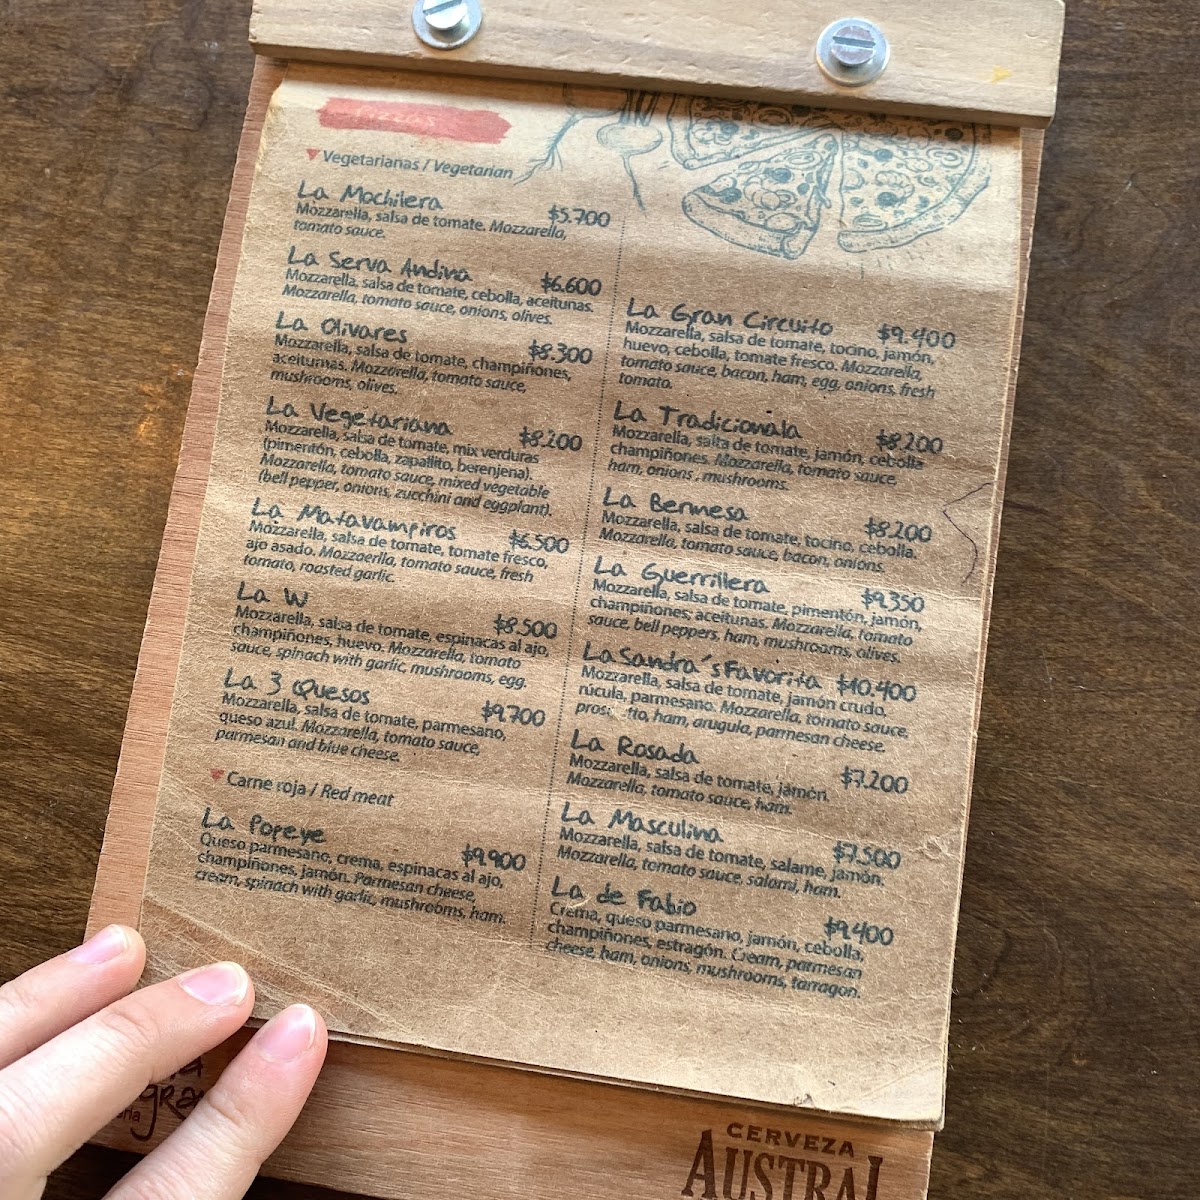 PIZZAS
Vegetarianas / Vegetarian
La Mochilera
$5.700
Mozzarella, salsa de tomate. Mozzarella,
tomato sauce.
La Serva Andina
$6.600
Mozzarella, salsa de tomate, cebolla, aceitunas.
Mozzarella, tomato sauce, onions, olives.
La Olivares
$8.300
Mozzarella, salsa de tomate, champiñones,
aceitunas. Mozzarella, tomato sauce,
mushrooms, olives.
La Vegetariana
$8.200
Mozzarella, salsa de tomate, mix verduras
(pimentón, cebolla, zapallito, berenjena).
Mozzarella, tomato sauce, mixed vegetable
(bell pepper, onions, zucchini and eggplant).
La Matavampiros
$6.500
Mozzarella, salsa de tomate, tomate fresco,
ajo asado. Mozzaerlla, tomato sauce, fresh
tomato, roasted garlic.
La W
$8.500
Mozzarella, salsa de tomate, espinacas al ajo,
champiñones, huevo. Mozzarella, tomato
sauce, spinach with garlic, mushrooms, egg.
La 3 Quesos
$9.700
Mozzarella, salsa de tomate, parmesano,
queso azul. Mozzarella, tomato sauce,
parmesan and blue cheese.
Carne roja / Red meat
La Popeye
$9.900
Queso parmesano, crema, espinacas al ajo,
champiñones, jamón. Parmesan cheese,
cream, spinach with garlic, mushrooms, ham.
La Gran Circuito
$9.400
Mozzarella, salsa de tomate, tocino, jamón,
huevo, cebolla, tomate fresco. Mozzarella,
tomato sauce, bacon, ham, egg, onions, fresh
tomato.
La Tradicionala
$8.200
Mozzarella, salta de tomate, jamón, cebolla
champiñones. Mozzarella, tomato sauce,
ham, onions , mushrooms.
La Bermesa
$8.200
Mozzarella, salsa de tomate, tocino, cebolla.
Mozzarella, tomato sauce, bacon, onions.
La Guerrillera
$9.350
Mozzarella, salsa de tomate, pimentón, jamón,
champiñones, aceitunas. Mozzarella, tomato
sauce, bell peppers, ham, mushrooms, olives.
La Sandra´s Favorita
$10.400
Mozzarella, salsa de tomate, jamón crudo,
rúcula, parmesano. Mozzarella, tomato sauce,
ham, arugula, parmesan cheese.
La Rosada
$7.200
Mozzarella, salsa de tomate, jamón.
Mozzarella, tomato sauce, ham.
La Masculina
$7.500
Mozzarella, salsa de tomate, salame, jamón.
Mozzarella, tomato sauce, salami, ham.
La de Fabio
$9.400
Crema, queso parmesano, jamón, cebolla,
champiñones, estragón. Cream, parmesan
cheese, ham, onions, mushrooms, tarragon.
CERVEZA
AUSTRAL